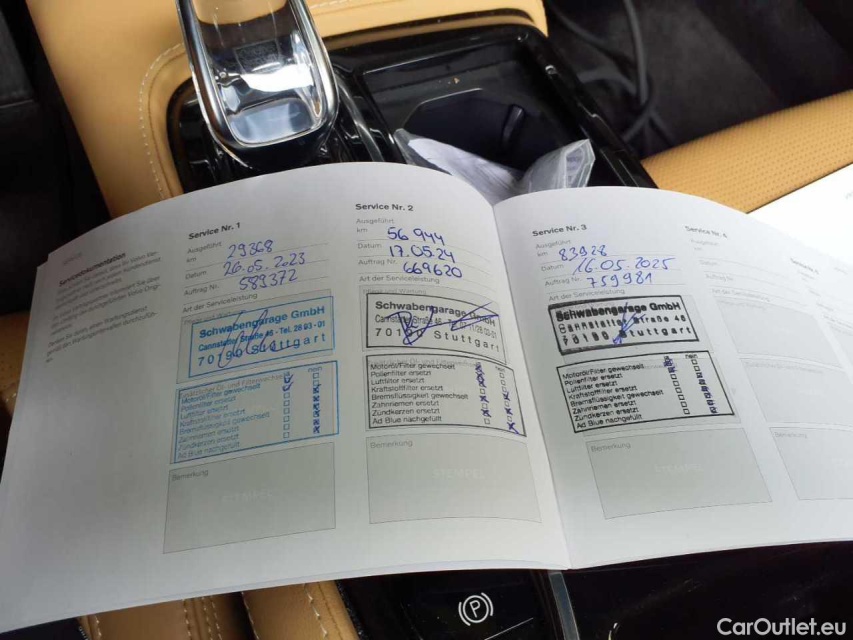 Servicedokumentation
Service Nr. 1
Ausgeführt
km 29368
Datum 26.05.2023
Auftrag Nr. 589372
Art der Serviceleistung
Schwabengarage GmbH
Cannstatter Straße 46 - Tel. 28 03-01
70190 Stuttgart
Motoröl/Filter gewechselt
nein
Pollenfilter ersetzt
Luftfilter ersetzt
Kraftstofffilter ersetzt
Bremsflüssigkeit gewechselt
Zahnriemen ersetzt
Zündkerzen ersetzt
Ad Blue nachgefüllt
Bemerkung
STEMPEL
Service Nr. 2
Ausgeführt
km 56944
Datum 17.05.24
Auftrag Nr. 669620
Art der Serviceleistung
Schwabengarage GmbH
Cannstatter Straße 46
70190 Stuttgart
Motoröl/Filter gewechselt
nein
Pollenfilter ersetzt
Luftfilter ersetzt
Kraftstofffilter ersetzt
Bremsflüssigkeit gewechselt
Zahnriemen ersetzt
Zündkerzen ersetzt
Ad Blue nachgefüllt
Bemerkung
STEMPEL
Service Nr. 3
Ausgeführt
km 83928
Datum 16.05.2025
Auftrag Nr. 759981
Art der Serviceleistung
Schwabengarage GmbH
Cannstatter Straße 46
70190 Stuttgart
Motoröl/Filter gewechselt
nein
Pollenfilter ersetzt
Luftfilter ersetzt
Kraftstofffilter ersetzt
Bremsflüssigkeit gewechselt
Zahnriemen ersetzt
Zündkerzen ersetzt
Ad Blue nachgefüllt
Bemerkung
STEMPEL
Service Nr. 4
P
CarOutlet.eu